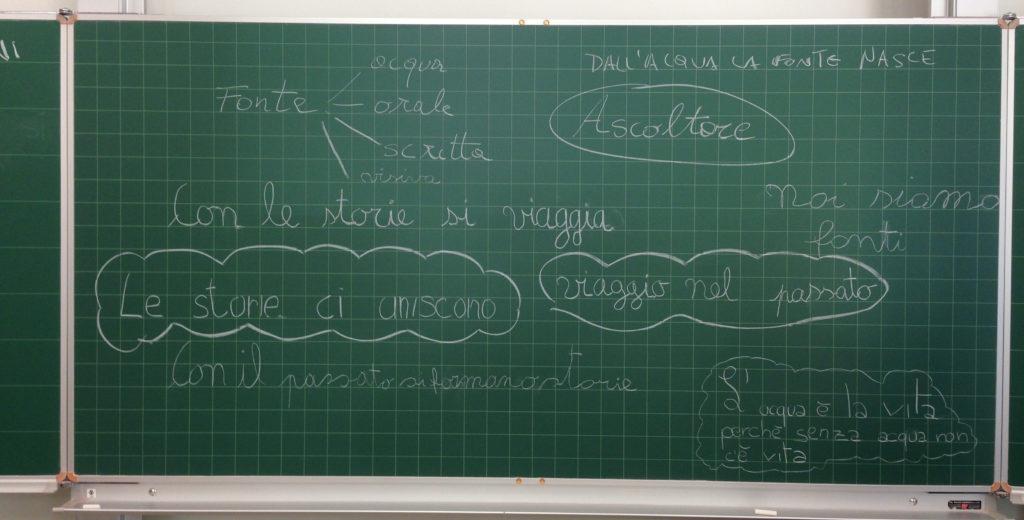 NI
acqua
DALL'ACQUA LA FONTE NASCE
Fonte orale
Ascoltore
scritta
visiva
Con le storie si viaggia
Noi siamo
fonti
Le storie ci uniscono
viaggio nel passato
Con il passato si formano storie
L'acqua è la vita
perchè senza acqua non
c'è vita